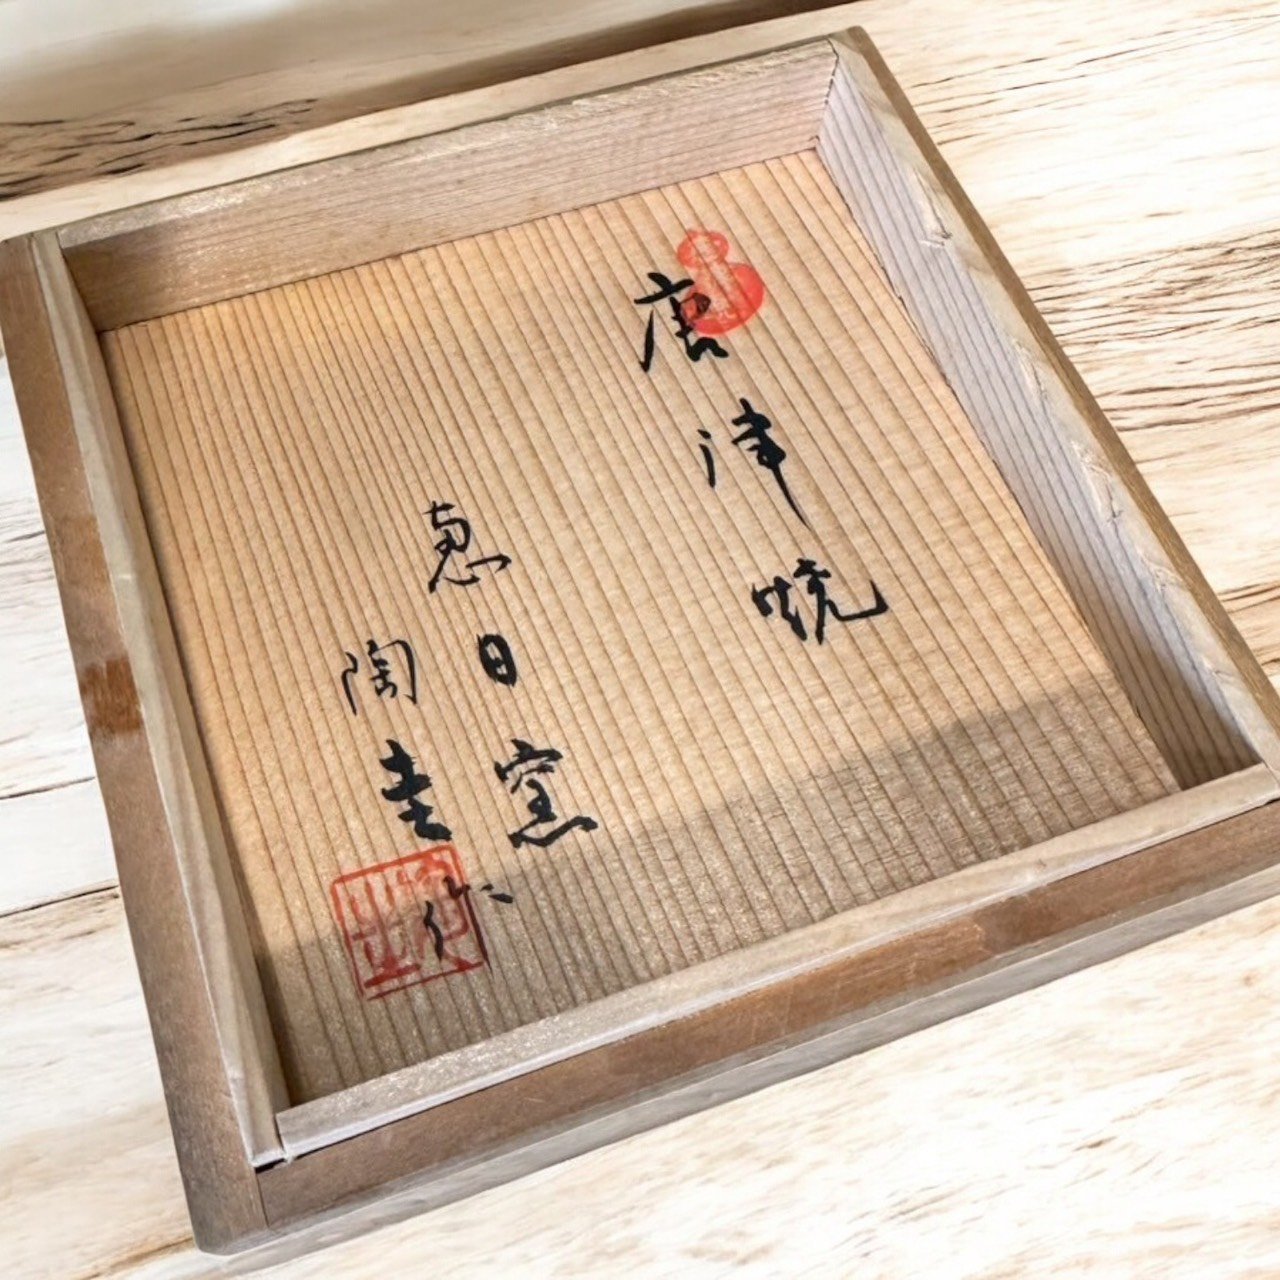 唐津焼
恵日窯
陶圭作